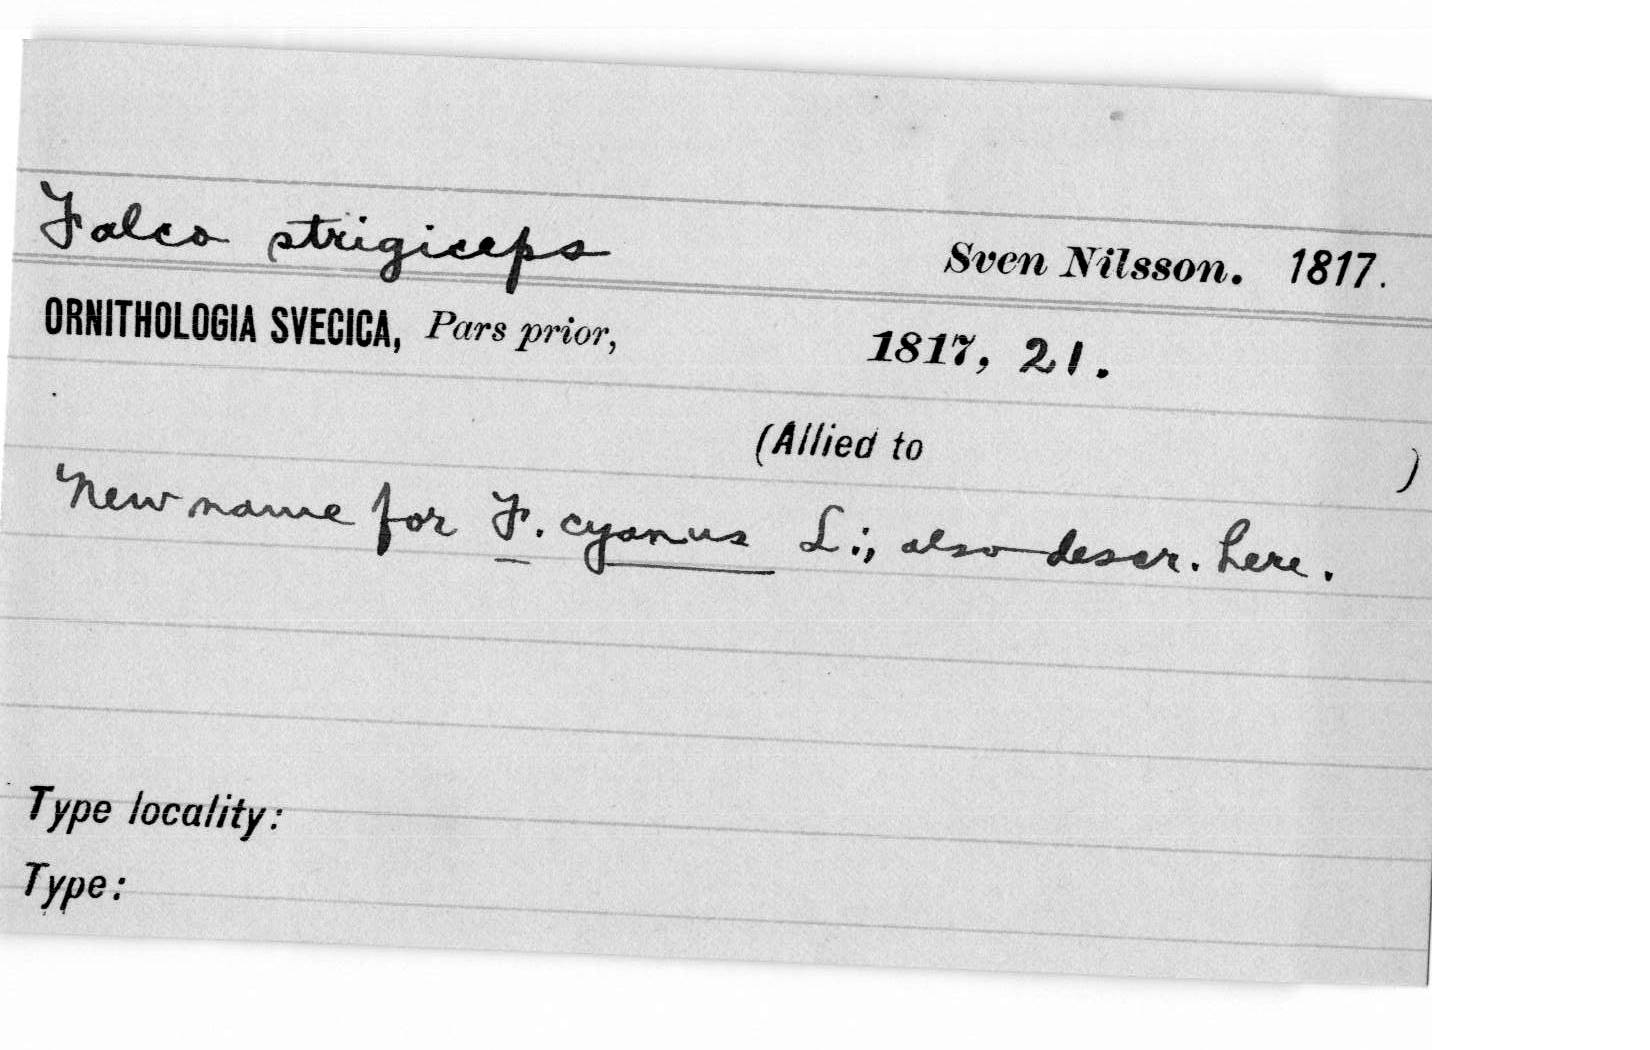 Falco strigiceps Sven Nilsson. 1817.
ORNITHOLOGIA SVECICA, Pars prior, 1817, 21.
(Allied to )
New name for F. cyanus L.; also descr. here.
Type locality:
Type: